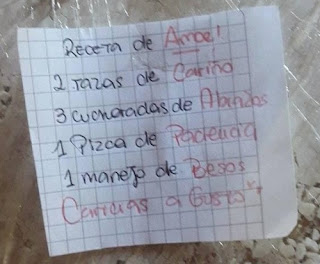 Receta de Amor!
2 Tazas de Cariño
3 cucharadas de Abrazos
1 Pizca de Paciencia
1 manejo de Besos
Caricias a Gusto